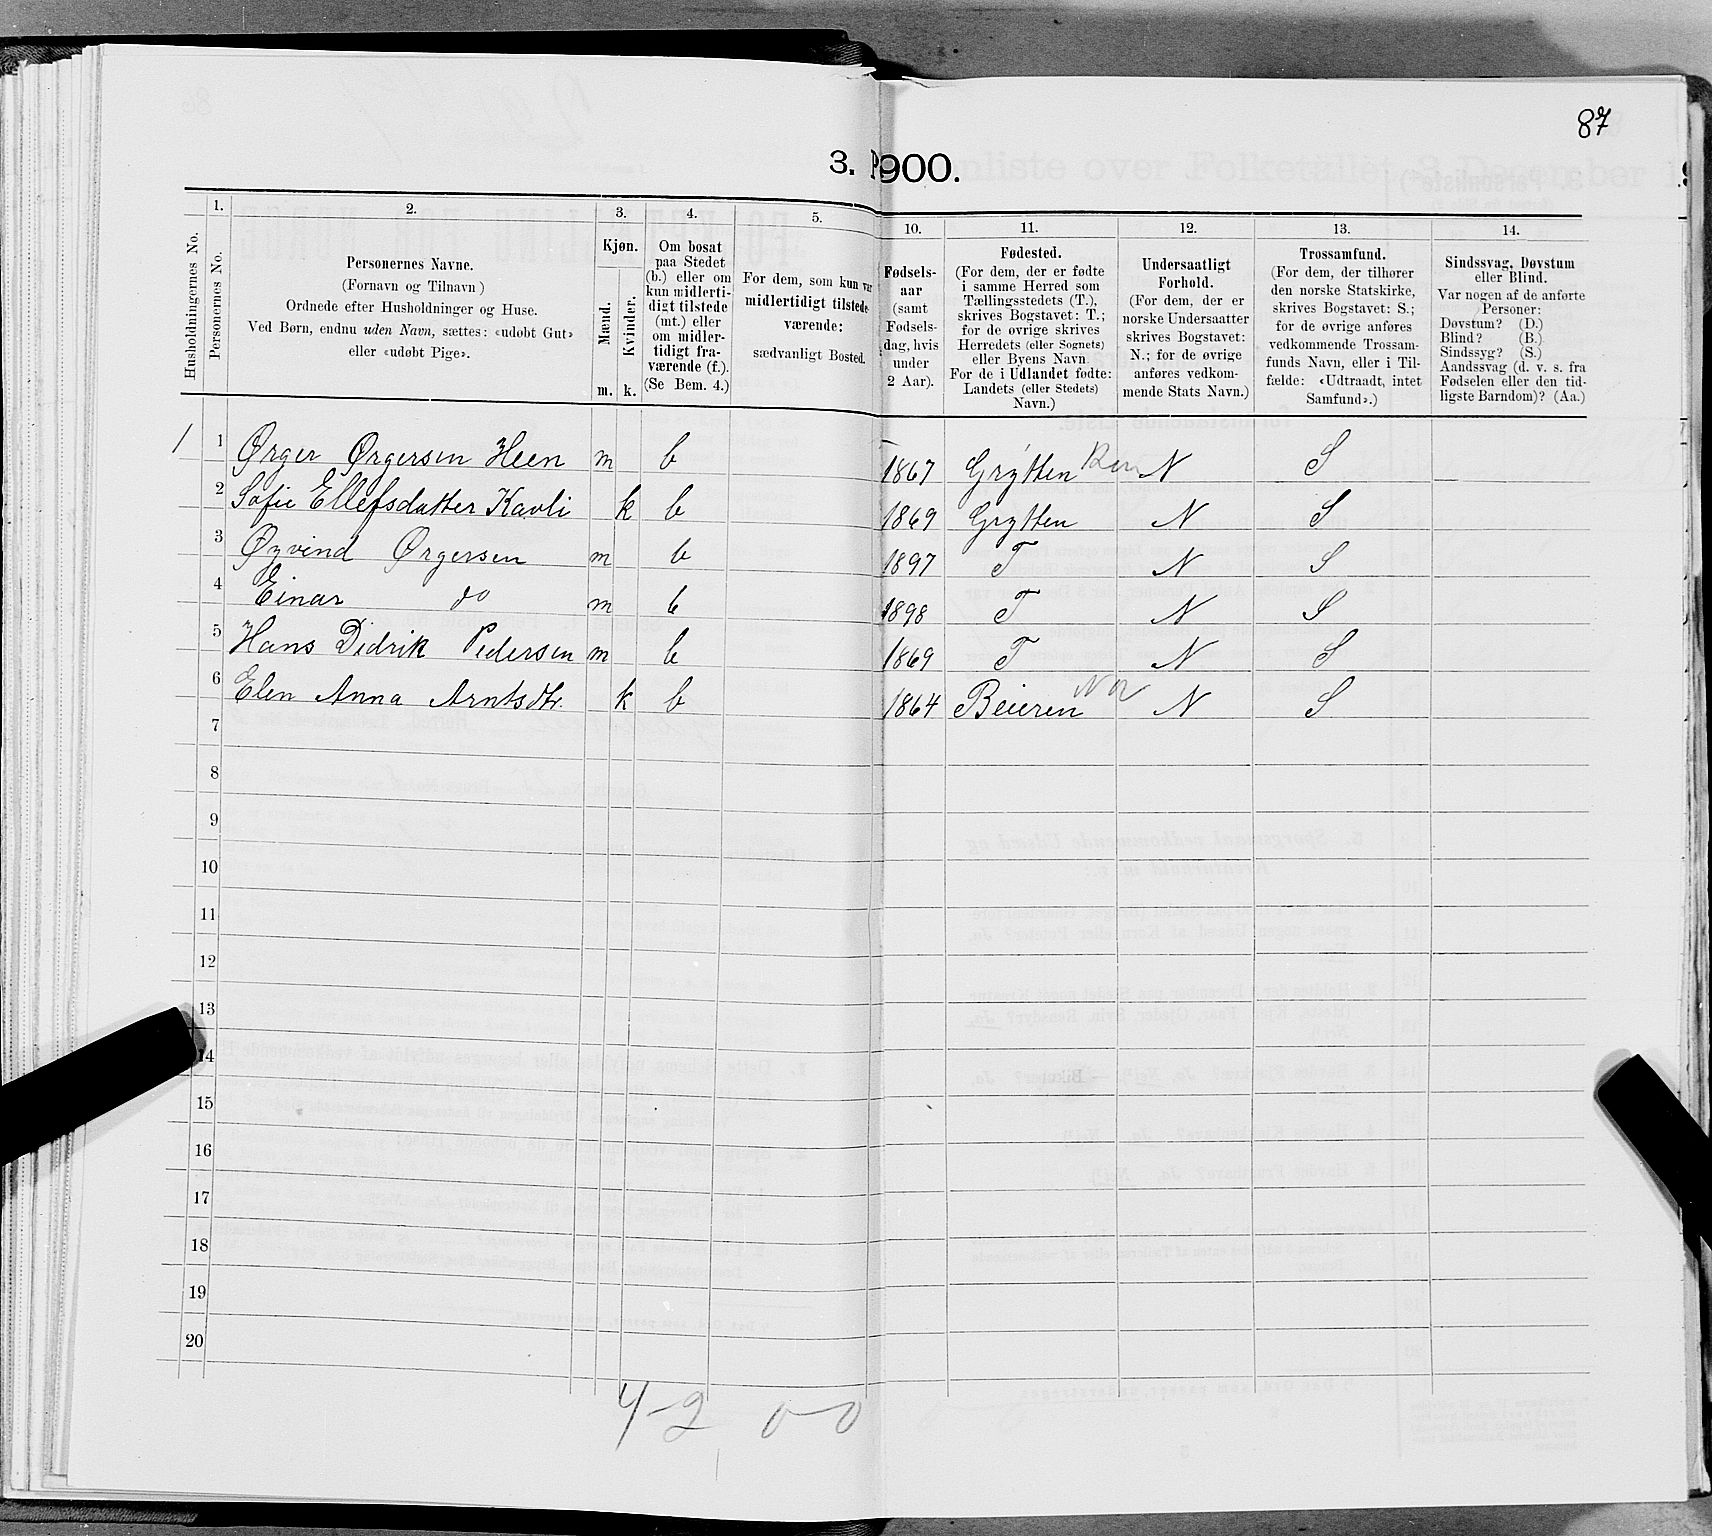 87
3. P900.
Husholdningernes No.
1.
Personernes No.
2.
Personernes Navne.
(Fornavn og Tilnavn)
Ordnede efter Husholdninger og Huse.
Ved Børn, endnu uden Navn, sættes: «udøbt Gut»
eller «udøbt Pige».
3.
Kjøn.
Mænd.
Kvinder.
m. k.
4.
Om bosat
paa Stedet
(b.) eller om
kun midlerti-
digt tilstede
(mt.) eller
om midler-
tidigt fra-
værende (f.).
(Se Bem. 4.)
5.
For dem, som kun var
midlertidigt tilstede-
værende:
sædvanligt Bosted.
10.
Fødsels-
aar
(samt
Fødsels-
dag, hvis
under
2 Aar).
11.
Fødested.
(For dem, der er fødte
i samme Herred som
Tællingsstedets (T.),
skrives Bogstavet: T.;
for de øvrige skrives
Herredets (eller Sognets)
eller Byens Navn.
For de i Udlandet fødte:
Landets (eller Stedets)
Navn.)
12.
Undersaatligt
Forhold.
(For dem, der er
norske Undersaatter
skrives Bogstavet:
N.; for de øvrige
anføres vedkom-
mende Stats Navn.)
13.
Trossamfund.
(For dem, der tilhører
den norske Statskirke,
skrives Bogstavet: S.;
for de øvrige anføres
vedkommende Trossam-
funds Navn, eller i Til-
fælde: «Udtraadt, intet
Samfund».)
14.
Sindssvag, Døvstum
eller Blind.
Var nogen af de anførte
Personer:
Døvstum? (D.)
Blind? (B.)
Sindssyg? (S.)
Aandssvag (d. v. s. fra
Fødselen eller den tid-
ligste Barndom)? (Aa.)
1 1 Ørger Ørgersen Heen m b 1867 Grytten N S
2 Sofie Ellefsdatter Kavli k b 1869 Grytten N S
3 Øyvind Ørgersen m b 1897 T N S
4 Einar do m b 1898 T N S
5 Hans Didrik Pedersen m b 1869 T N S
6 Elen Anna Arntsdtr. k b 1864 Beieren N S
7
8
9
10
11
12
13
14
15
16
17
18
19
20
4-2 0-0